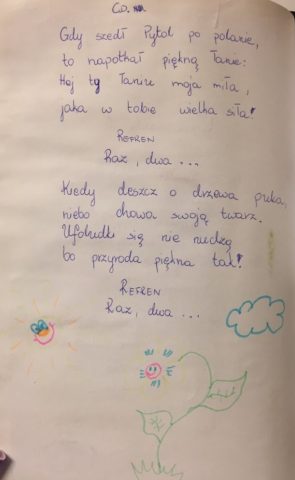 CD.
Gdy szedł Pytol po polanie,
to napotkał piękną Łanie:
Hej ty Taniu moja miła,
jaka w tobie wielka siła!
REFREN
Raz, dwa ...
Kiedy deszcz o drzewa puka,
niebo chowa swoją twarz.
Ufoludki się nie nudzą
bo przyroda piękna tak!
REFREN
Raz, dwa ...